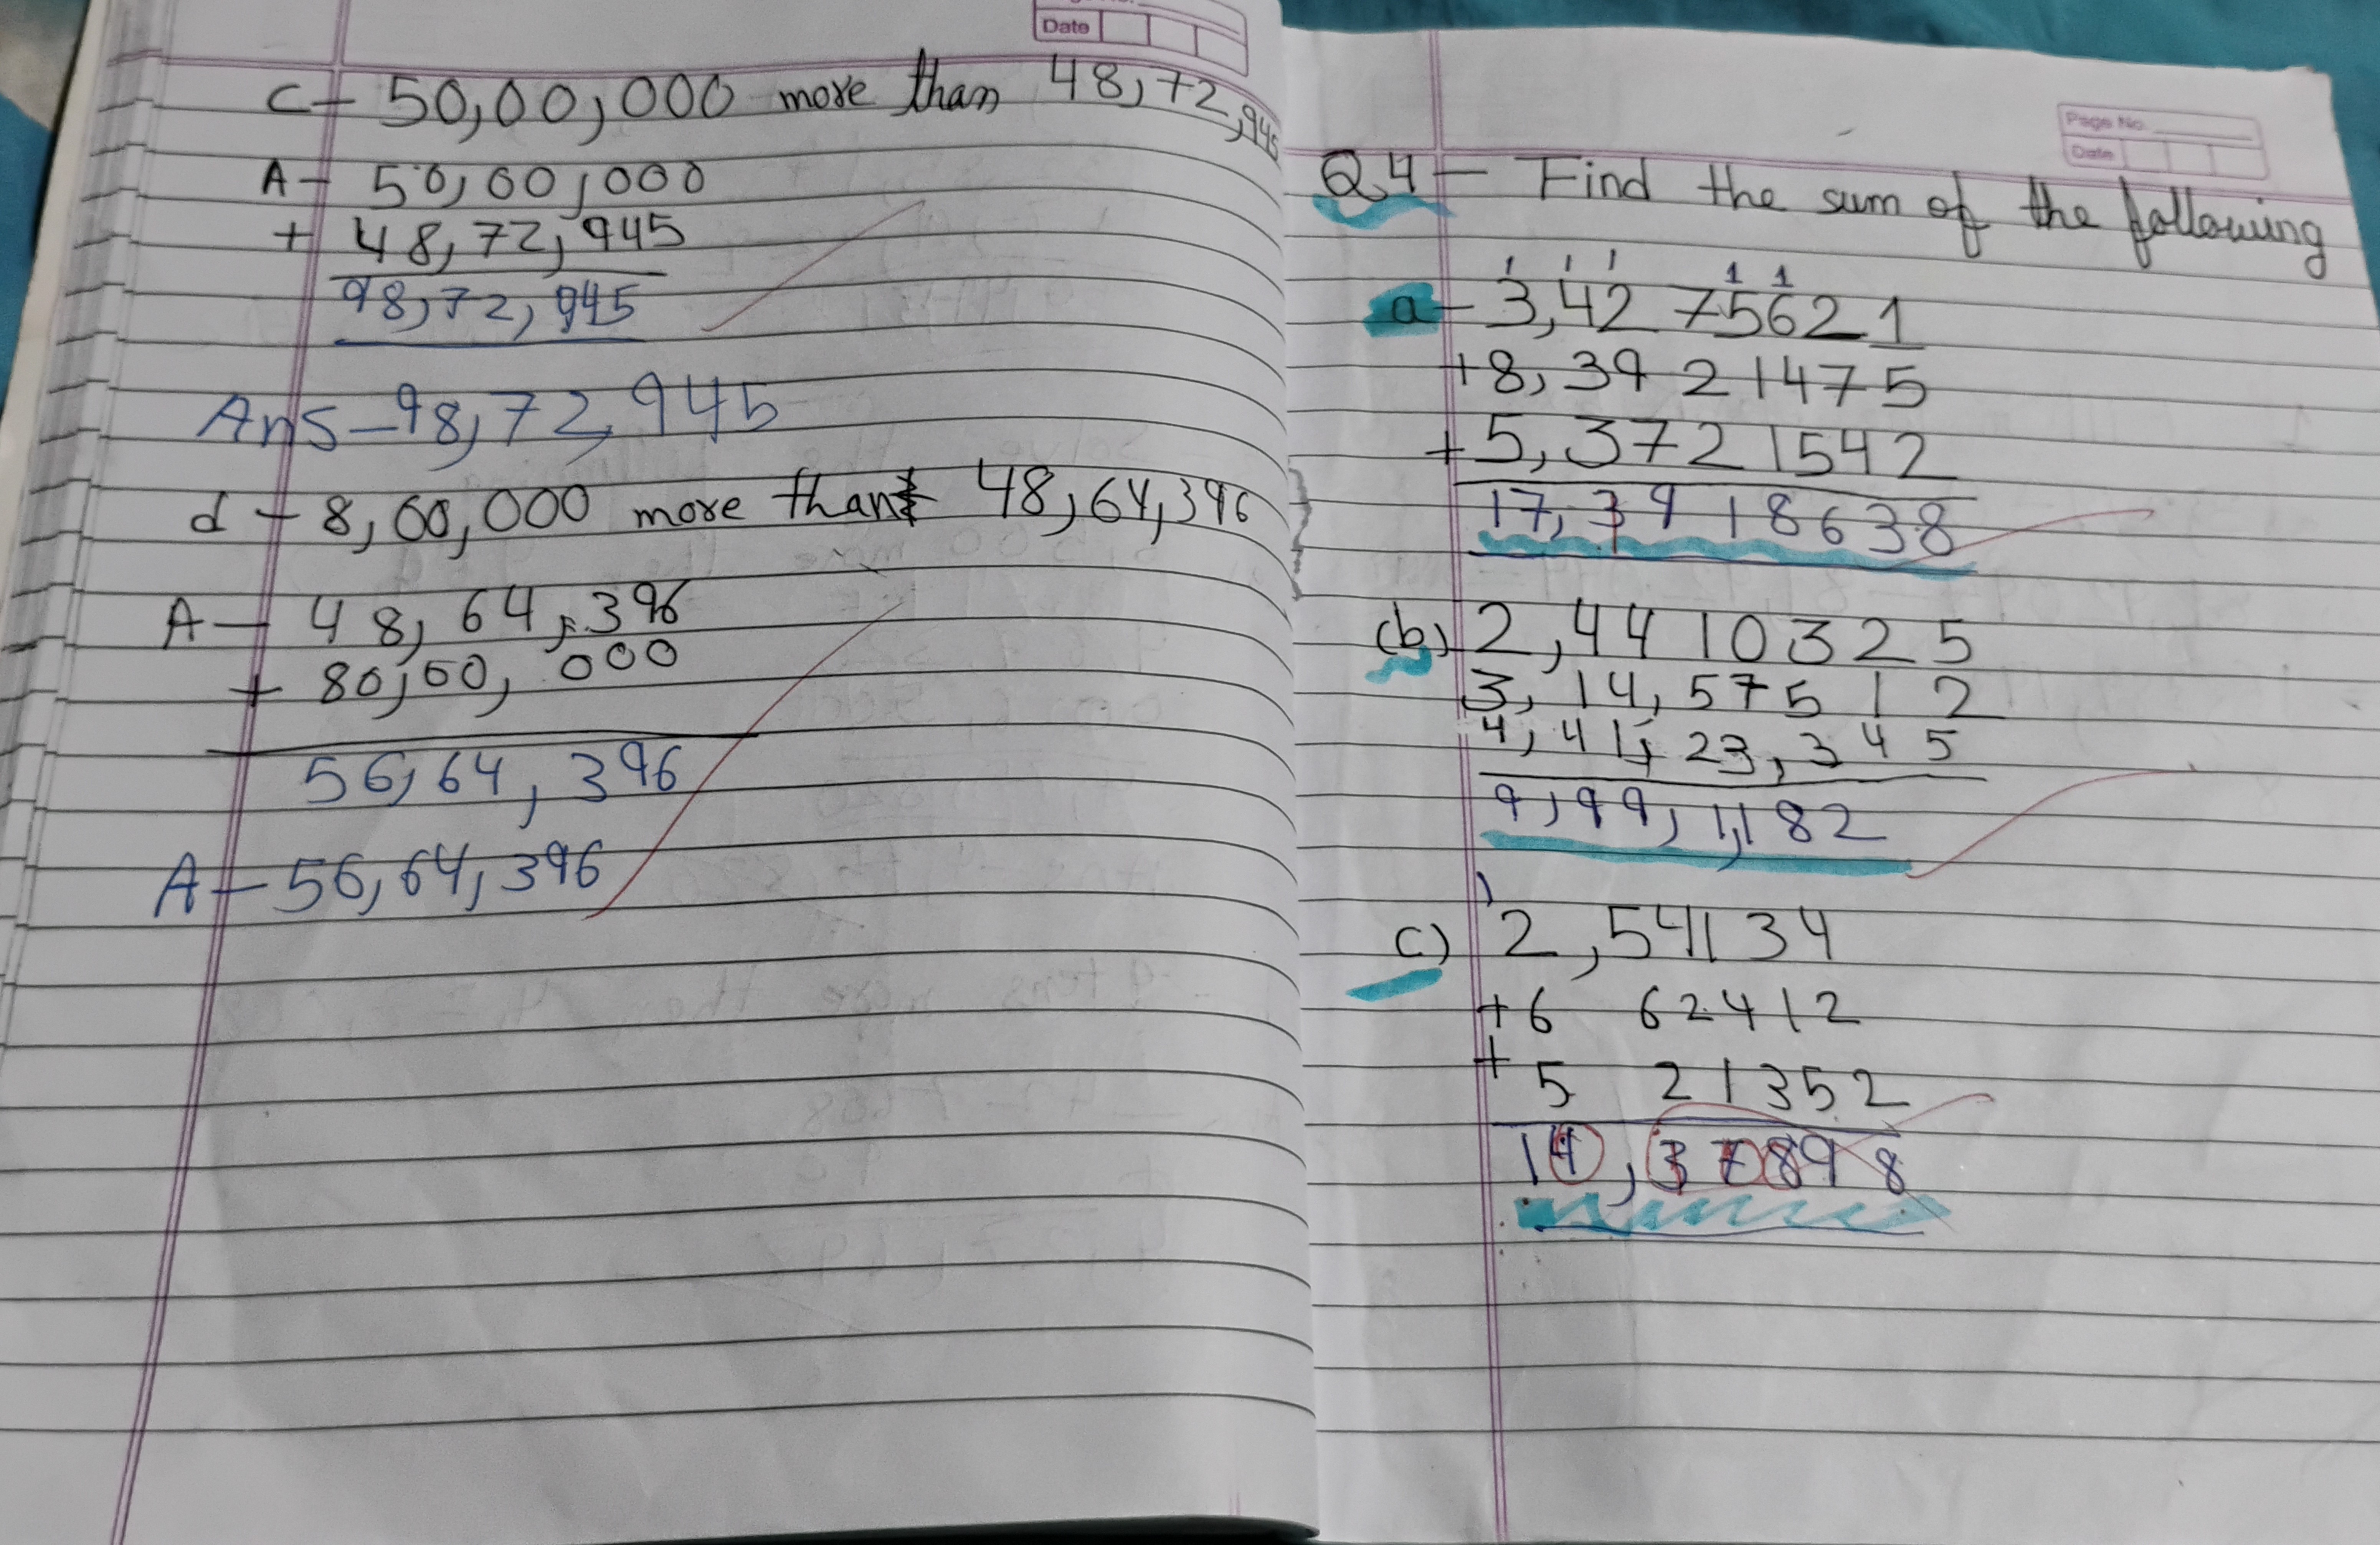 Date
C- 50,00,000 more than 48,72,945
A- 50,00,000
+ 48,72,945
98,72,945
Ans-98,72,945
d - 8,00,000 more than 48,64,396
A- 48,64,396
+ 80,00,000
56,64,396
A-56,64,396
Page No.
Date
Q4- Find the sum of the following
1 1 1 1 1
a- 3,42 75621
+8,39 21475
+5,3721542
17,3918638
(b) 2,44 10325
3,14,57512
4,41,23,345
9,99,1,182
c) 2,54134
+6 62412
+
5 21352
14,37898